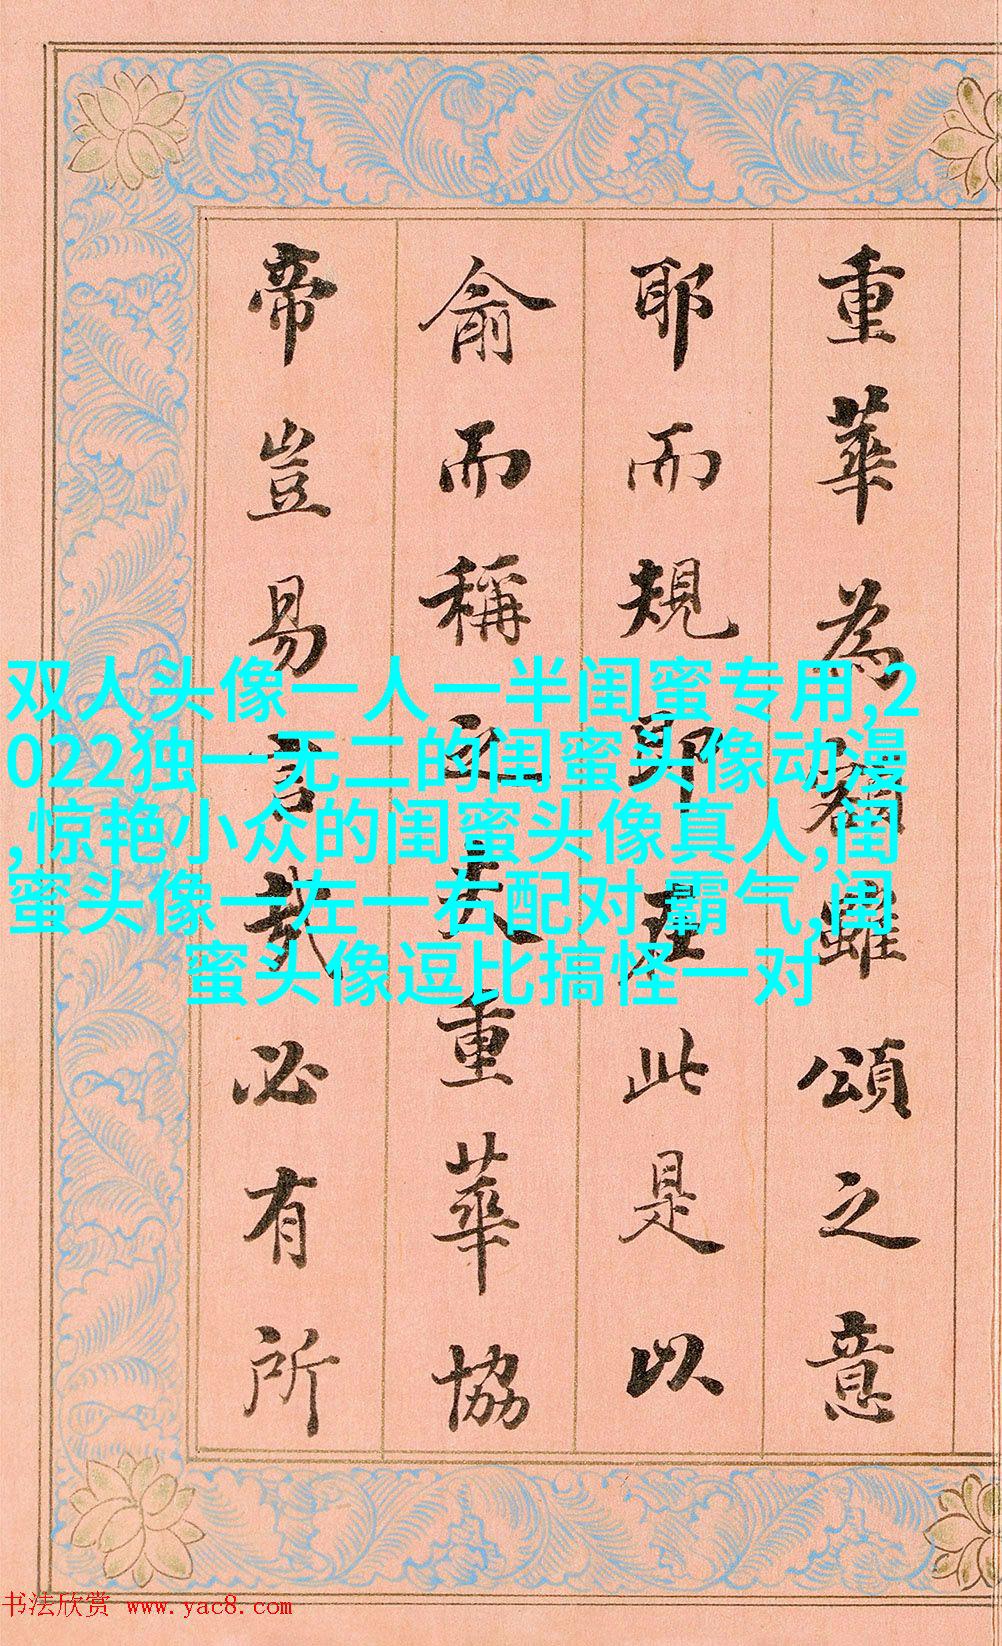 重華為額雖頌之意
耶而規即理此是以
俞而稱之重華協
帝豈易言哉必有所
双人头像一人一半闺蜜专用,2
022独一无二的闺蜜头像动漫
,惊艳小众的闺蜜头像真人,闺
蜜头像一左一右配对 霸气,闺
蜜头像逗比搞怪一对
书法欣赏 www.yac8.com